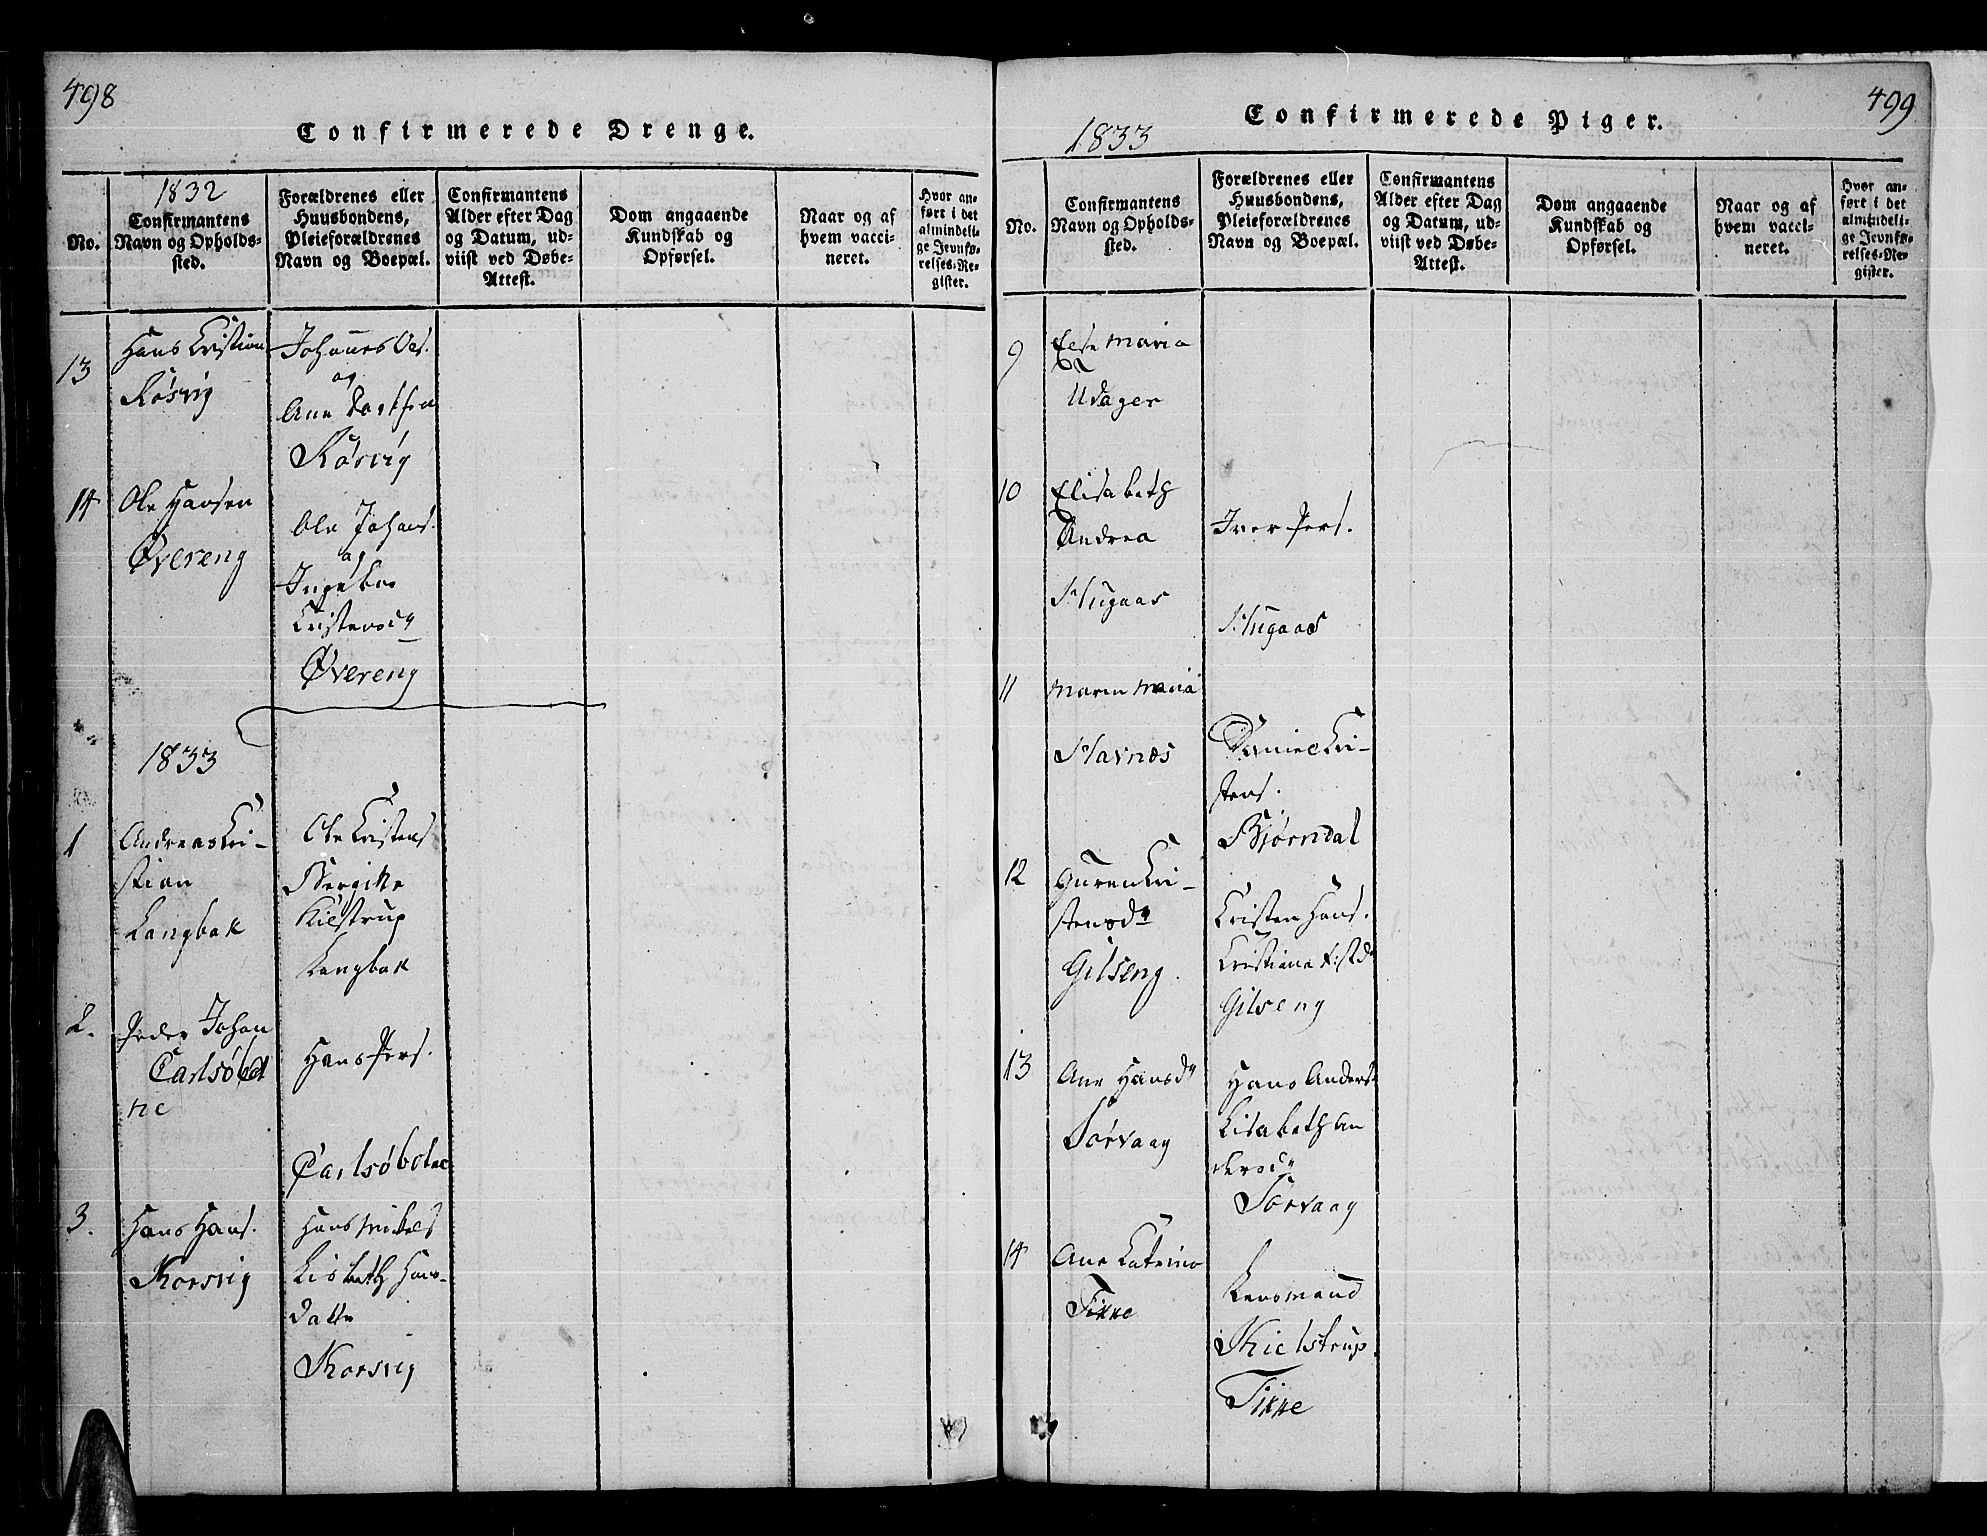 498
Confirmerede Drenge.
No.
1832
Confirmantens
Navn og Opholds-
sted.
Forældrenes eller
Huusbondens,
Pleieforældrenes
Navn og Boepæl.
Confirmantens
Alder efter Dag
og Datum, ud-
viist ved Døbe-
Attest.
Dom angaaende
Kundskab og
Opførsel.
Naar og af
hvem vacci-
neret.
Hvor an-
ført i det
almindeli-
ge Jevnfø-
relses-Re-
gister.
13
Hans Cristian
Røsvig
Johannes Oes.
og
Ane Dorthea
Røsvig
14
Ole Hansen
Øvereng
Ole Johans.
og
Ingebor
Cristensdr
Øvereng
1833
1
Andreas Cri-
stian
Langbak
Ole Cristens
Bergitte
Kilstrup
Langbak
2.
Peder Johan
Carlsøbot
ne
Hans Pers.
Carlsøbotne
3.
Hans Hans.
Korsvig
Hans Mikels
Lisbeth Hans-
datter
Korsvig
499
Confirmerede Piger.
1833
No.
Confirmantens
Navn og Opholds-
sted.
Forældrenes eller
Huusbondens,
Pleieforældrenes
Navn og Boepæl.
Confirmantens
Alder efter Dag
og Datum, ud-
viist ved Døbe-
Attest.
Dom angaaende
Kundskab og
Opførsel.
Naar og af
hvem vacci-
neret.
Hvor an-
ført i det
almindeli-
ge Jevnfø-
relses-Re-
gister.
9
Else Maria
Udager
10
Elisabeth
Andrea
Iver Pers.
11
Maren Maria
Stavnes
Daniel Cri-
stens.
Bjørndal
12
Guren Cri-
stensdr
Gilseng
Cristen Hans.
Cristiana
Gilseng
13
Ane Hansdr
Sørvaag
Hans Anders
Lisabeth An
dersdr
Sørvaag
14
Ane Catrina
Finne
Lensmand
Kielstrup.
Finne